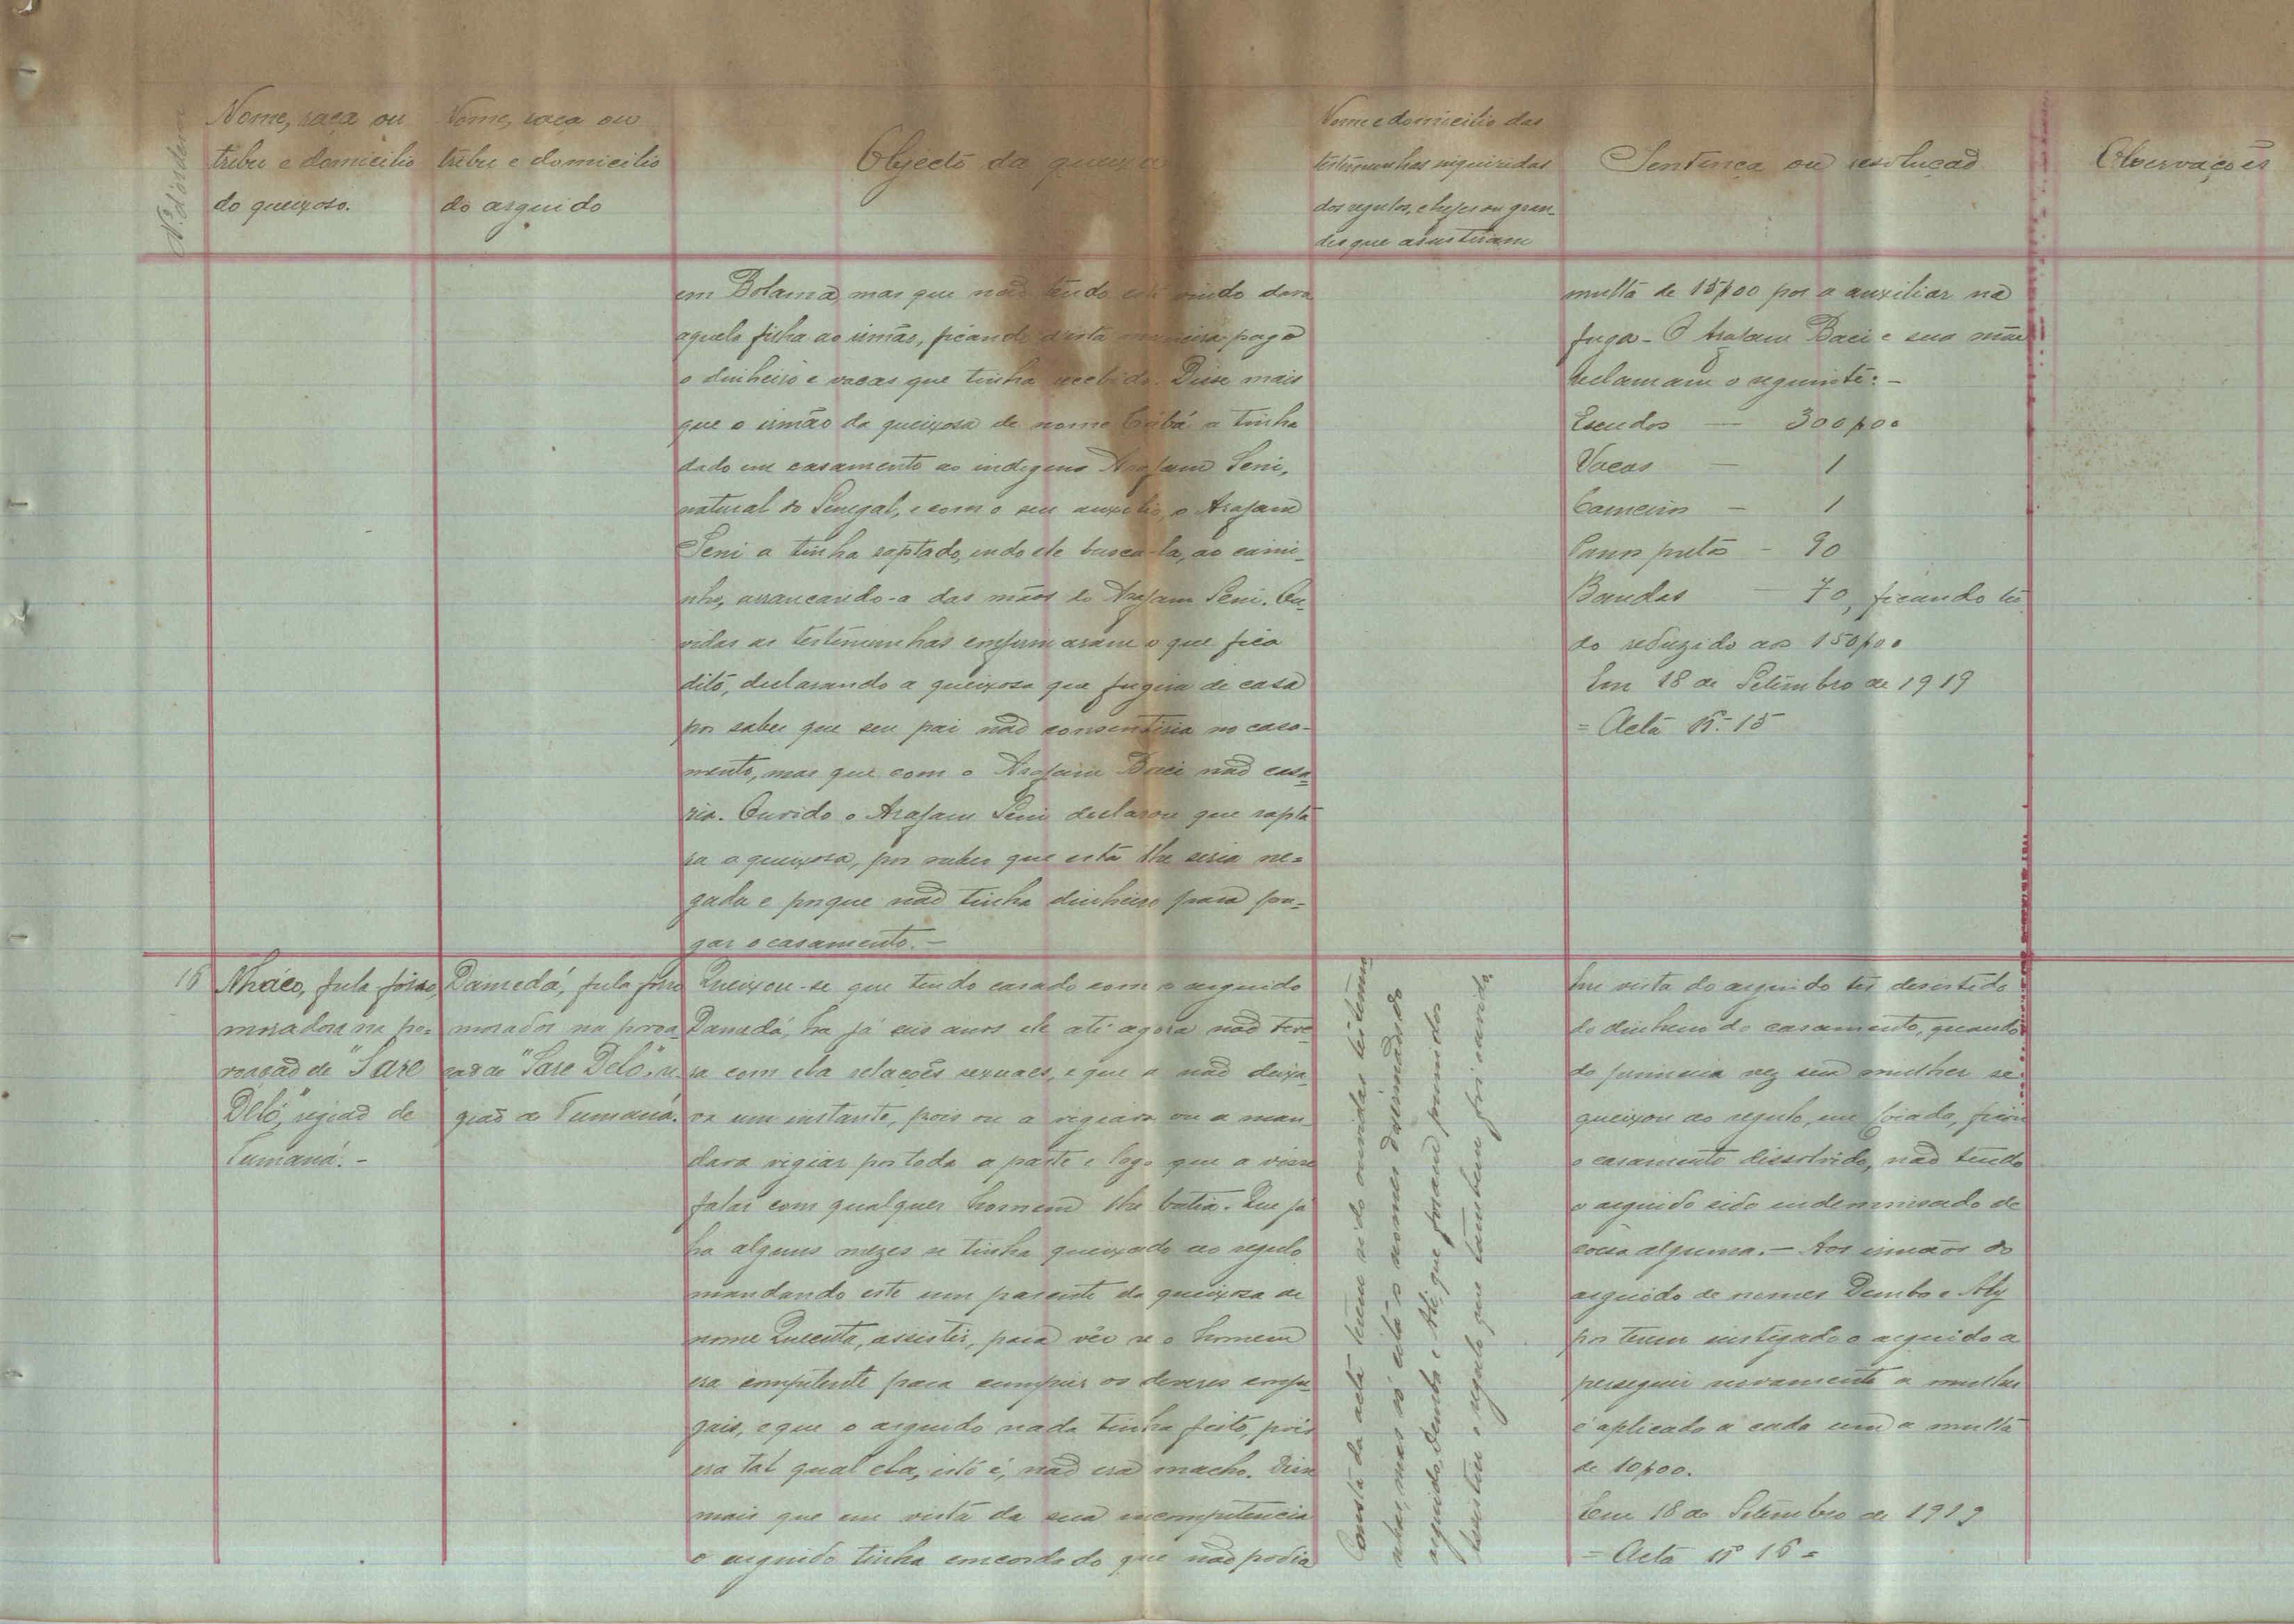 Nº d'ordem
Nome, raça ou
tribu e domicilio
do queixoso.
Nome, raça ou
tribu e domicilio
do arguido
Objecto da queixa
Nome e domicilio das
testemunhas inquiridas
dos regulos, chefes ou gran-
des que assistiram
Sentença ou resolução
Observações
em Bolama, mas que não tendo este vindo dera
aquela filha ao irmão, ficando desta maneira pago
o dinheiro e vacas que tinha recebido. Disse mais
que o irmão da queixosa de nome a tinha
dado em casamento ao indigena Arafam Seni,
natural do Senegal, e com o seu auxilio, o Arafam
Seni a tinha raptado, indo ele busca-la, ao cami-
nho, arrancando-a das mãos do Arafam Seni. Ou-
vidas as testemunhas confirmaram o que fica
dito, declarando a queixosa que fugira de casa
por saber que seu pai não consentiria no casa-
mento, mas que com o Arafam Baci não casa-
ria. Ouvido o Arafam Seni declarou que rapta
ra a queixosa, por saber que esta lhe seria ne-
gada e porque não tinha dinheiro para pa-
gar o casamento. -
multa de 15$00 por a auxiliar na
fuga - O Arafam Baci e sua mãe
reclamam o seguinte: -
Escudos - 300$00
Vacas - 1
Carneiro - 1
Panos preto - 90
Bandas - 70, ficando tu
do reduzido aos 150$00
Em 18 de Setembro de 1919
= Acta nº 15
16
Nháco, fula forro,
moradora na po-
voação de "Sare
Deló", região de
Tumaná. -
Damedá, fula forro
morador na povoa-
ção de "Sare Deló", re-
gião de Tumaná.
Queixou-se que tendo casado com o arguido
Damedá, ha já seis anos ele até agora não tive-
ra com ela relações sexuaes, e que a não deixa-
va um instante, pois ou a vigiava ou a man-
dava vigiar por toda a parte e logo que a visse
falar com qualquer homem lhe batia. Que já
ha alguns mezes se tinha queixado ao regulo
mandando este um parente da queixosa de
nome Quecuta, assistir, para vêr se o homem
era competente para cumprir os deveres conju-
gais, e que o arguido nada tinha feito, pois
era tal qual ela, isto é, não era macho. Disse
mais que em vista da sua incompetencia
o arguido tinha concordado que não podia
Consta da acta terem sido ouvidas testemu-
nhas, mas só cita os nomes dos irmãos do
arguido, Demba e Ali, que foram punidos
Assistiu o regulo que tambem foi ouvido.
Em vista do arguido ter desistido
do dinheiro do casamento, quando
da primeira vez sua mulher se
queixou ao regulo, em Coiada, ficou
o casamento dissolvido, não tendo
o arguido sido indemnisado de
coisa alguma. - Aos irmãos do
arguido de nomes Demba e Aly
por terem instigado o arguido a
perseguir novamente a mulher
é aplicado a cada um a multa
de 10$00.
Em 18 de Setembro de 1919
= Acta nº 16 =